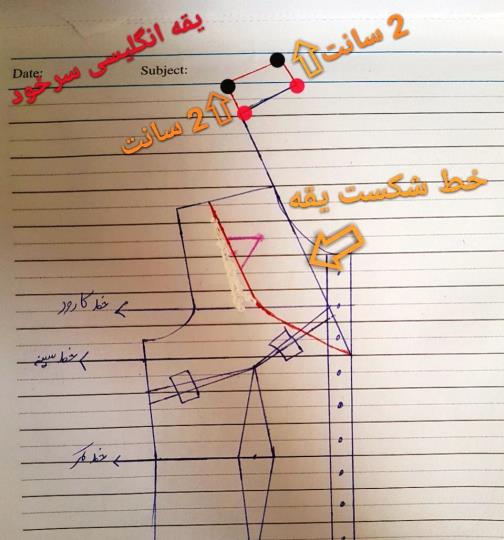 یقه انگلیسی سرخود
2 سانت
Date:
Subject:
2 سانت
خط شکست یقه
خط کارور
خط سینه
خط کمر